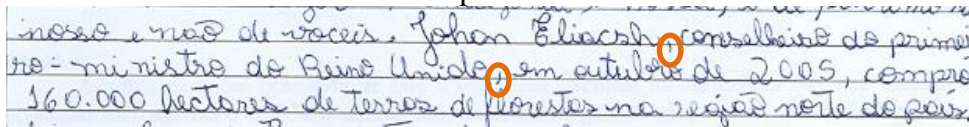 nosso e não de voceis. Johan Eliacsh, conselheiro do primei
ro-ministro do Reino Unido, em outubro de 2005, compro
160.000 hectares de terras de florestas na região norte do país,